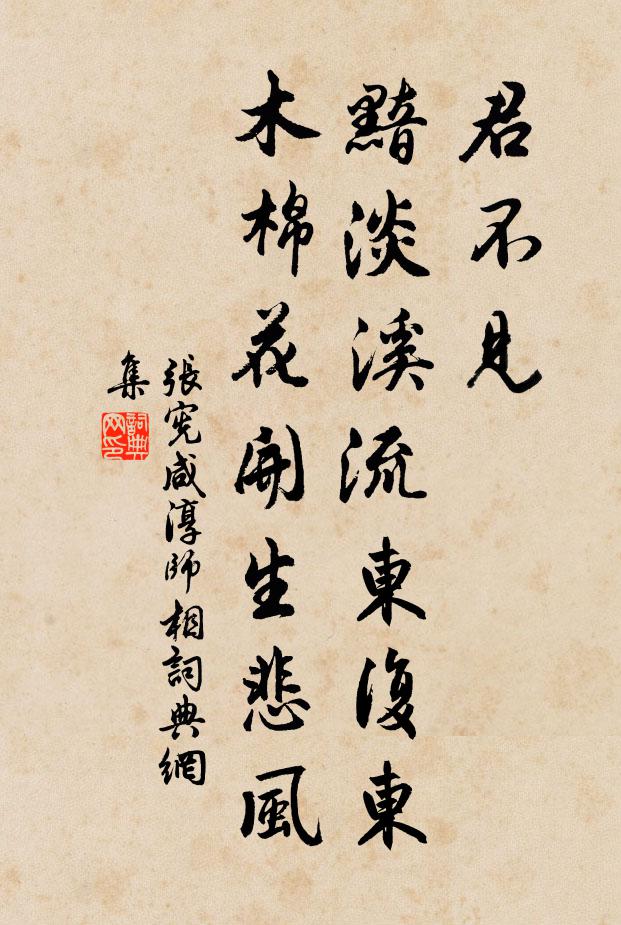 君不見
黯淡溪流東復東
木棉花開生悲風
張憲咸淳師相詞典網
集
詞典
网印